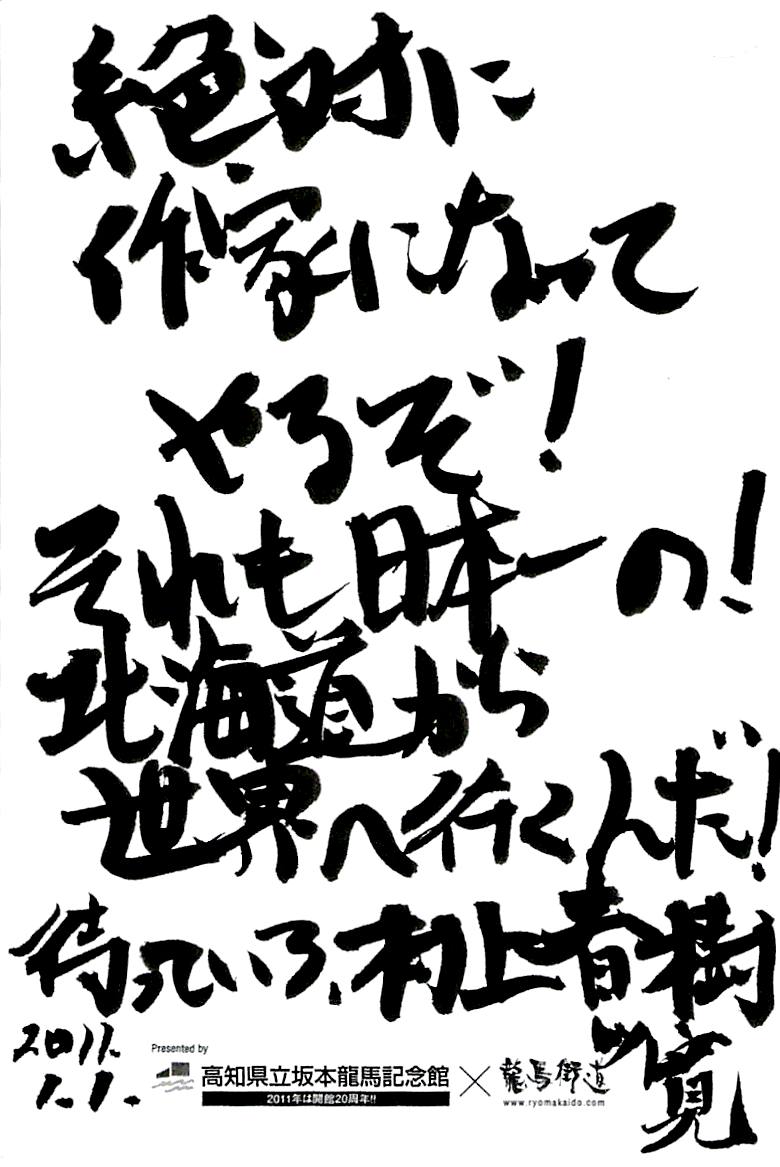 絶対に
作家になって
やるぞ!
それも日本一の!
北海道から
世界へ行くんだ!
待っていろ、村上春樹
2011.
1.1.
寛
Presented by
高知県立坂本龍馬記念館
2011年は開館20周年!!
×
龍馬街道
www.ryomakaido.com